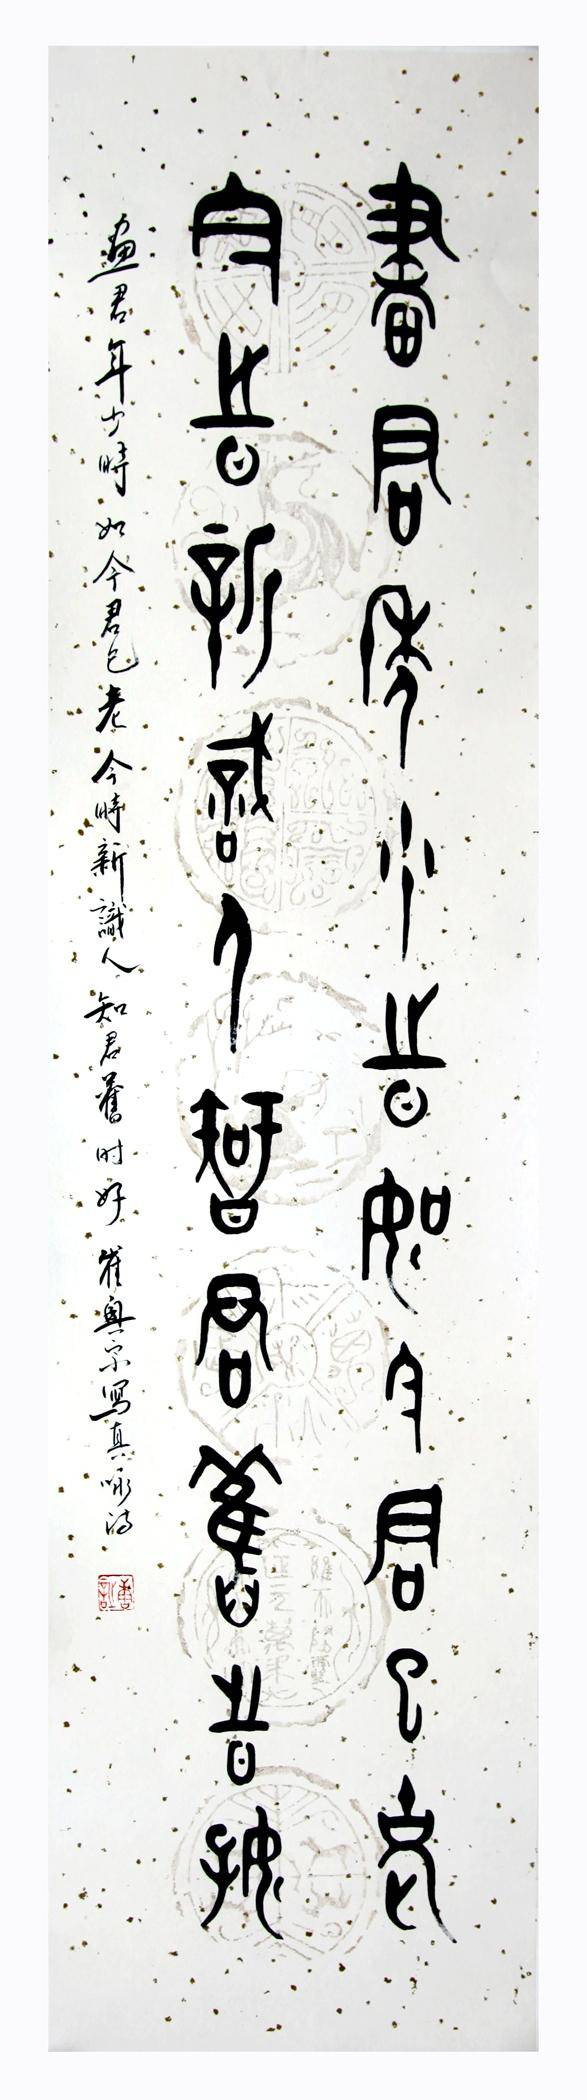 畫君年少時如今君已老
今時新識人知君舊時好
畫君年少時如今君已老今時新識人知君舊时好崔興宗寫真咏诗